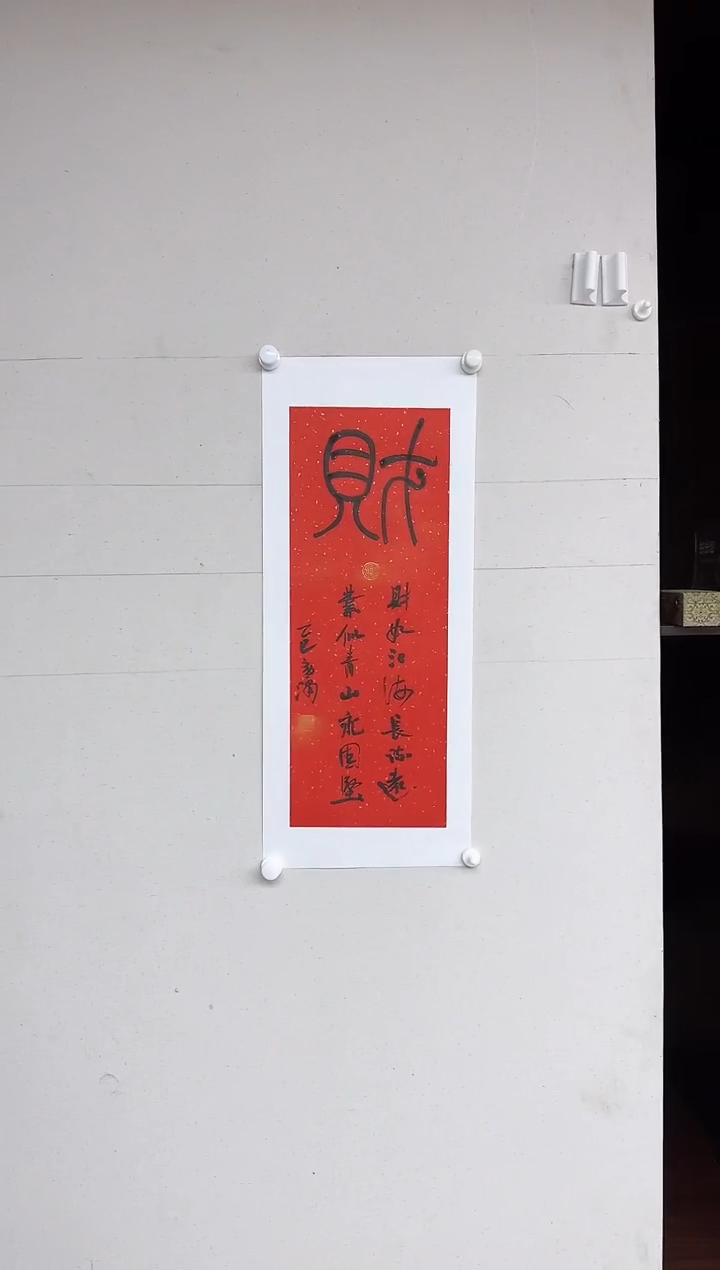 財
財如江海長流遠
業似青山永固堅
乙巳